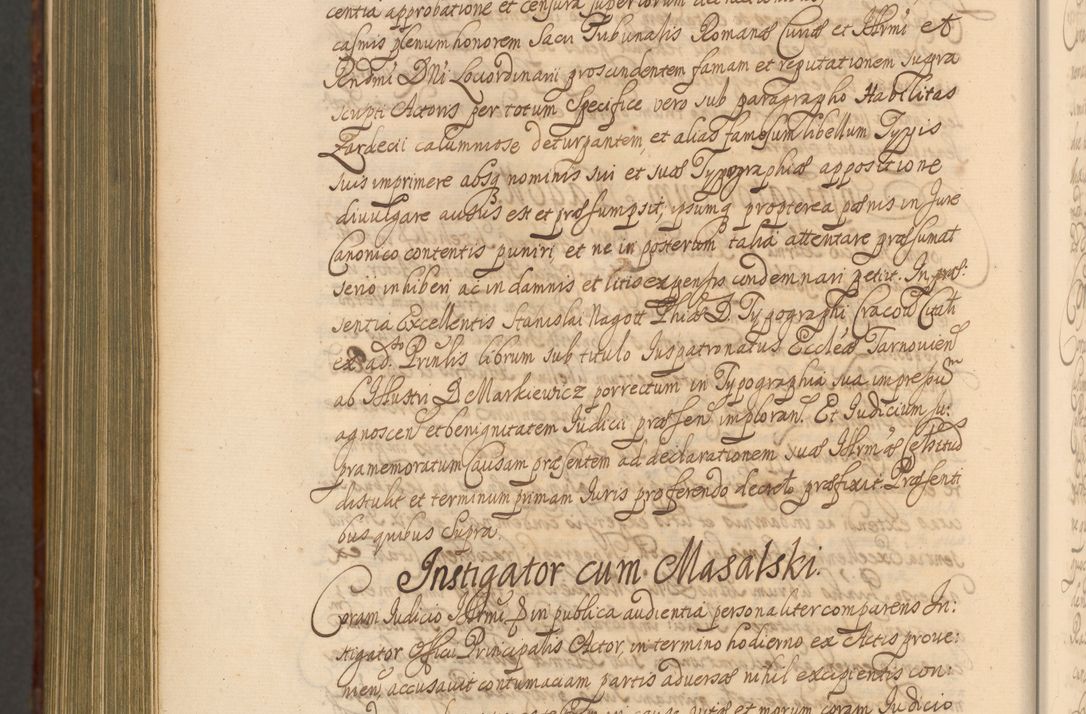 centia approbatione et censura superiorum
casmis plenum honorem Sacri Tribunalis Romanæ Curiæ et Illrmi et
Rendmi Dni Lociordinarii proscindentem famam et reputationem supra
scripti Actoris per totum Specifice vero sub paragrapho Habilitas
Zardecii calumniose deturpantem, et alias famosum libellum Typis
suis imprimere absq nominis sui et suæ Typographiæ appositione
divulgare ausus est et præsumpsit, ipsumq propterea pœnis in Jure
Canonico contentis puniri, et ne in posterum talia attentare præsumat
serio inhiberi ac in damnis et litis expensis condemnari petiit. In præ:
sentia Excellentis Stanislai Nagott Phiæ D Typographi Cracov Citati
ex adto Prinlis librum sub titulo Juspatronatus Eccleæ Tarnovien
ab Illustri D Markiewicz porrectum in Typographia sua impressum
agnoscen et benignitatem Judicii præsen imploran. Et Judicium su:
pramemoratum Causam præsentem ad declarationem suæ Illrmæ Celsitud
distulit et terminum primam Juris proferendo decreto præfixit Præsenti
bus quibus supra.
Instigator cum Masalski.
Coram Judicio Illrmi D in publica audientia personaliter comparens In:
stigator Officii Principalis Actor, in termino hodierno ex Actis prove:
nien, accusavit contumaciam partis adversæ nihil excipientis con:
morum coram Judicio